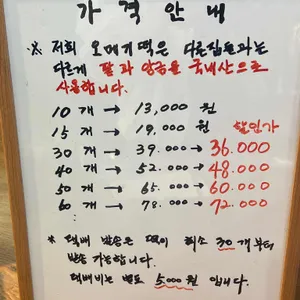 가격안내
※ 저희 오메기떡은 다른집들과는
다르게 팥과 앙금을 국내산으로
사용합니다.
10개 → 13,000 원
15개 → 19,000 원 할인가
30개 → 39.000 → 36.000
40개 → 52.000 → 48.000
50개 → 65.000 → 60.000
60개 → 78.000 → 72.000
* 택배 발송은 떡이 최소 30개부터
발송 가능합니다.
택배비는 별도 5.000원 입니다.